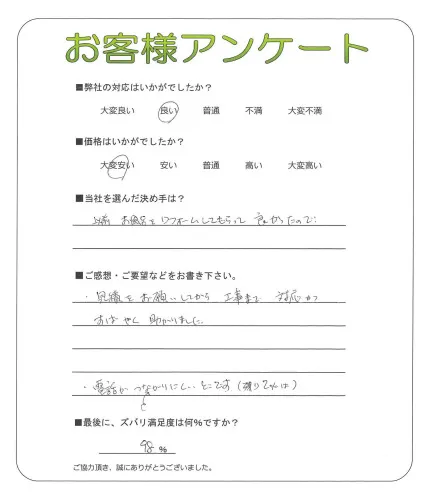 お客様アンケート
■弊社の対応はいかがでしたか？
大変良い 良い 普通 不満 大変不満
■価格はいかがでしたか？
大変安い 安い 普通 高い 大変高い
■当社を選んだ決め手は？
以前 お風呂をリフォームしてもらって 良かったので
■ご感想・ご要望などをお書き下さい。
・見積をお願いしてから 工事まで 対応が
すばやく 助かりました
・電話がつながりにくい そこです(残り2%は)
■最後に、ズバリ満足度は何%ですか？
98 %
ご協力頂き、誠にありがとうございました。